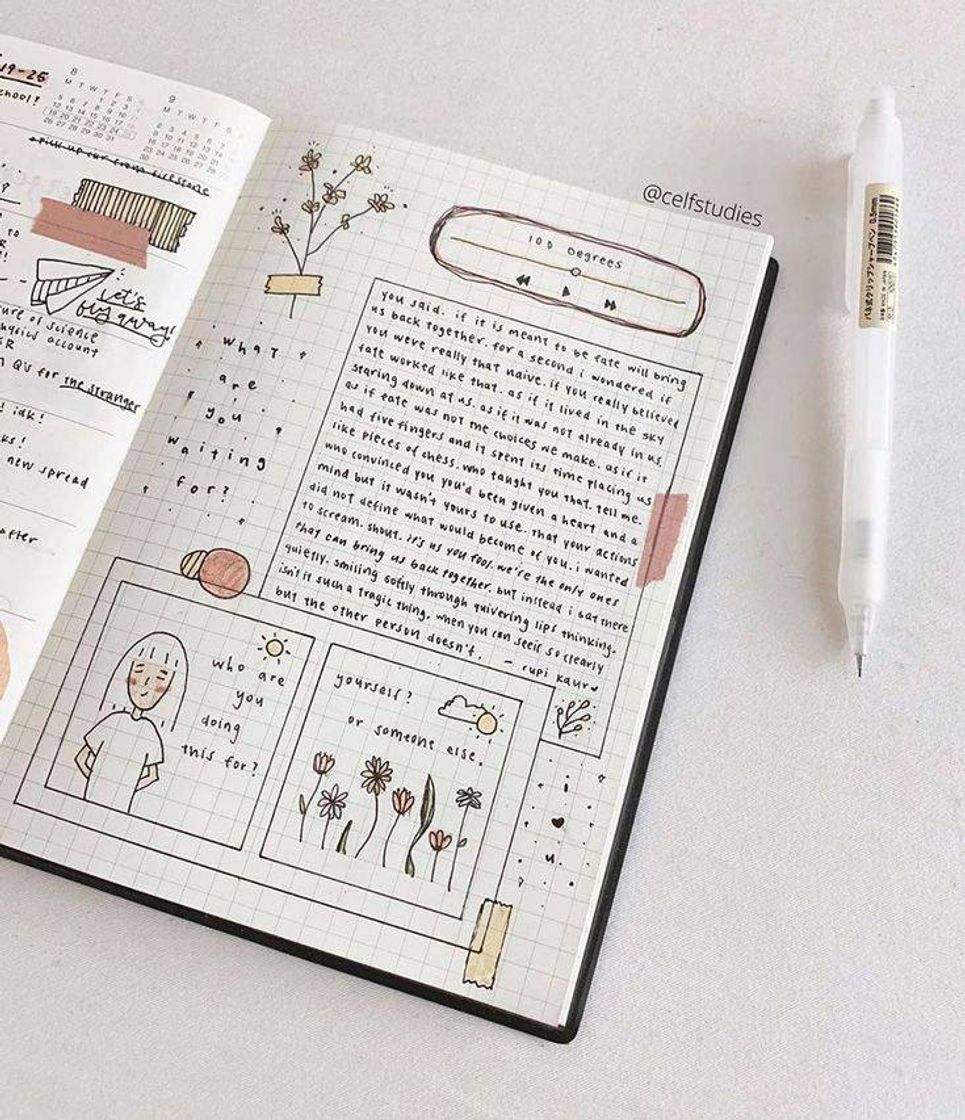 19-25
school!
8
M T W T F S S
1 2 3 4
5 6 7 8 9 10 11
12 13 14 15 16 17 18
19 20 21 22 23 24 25
26 27 28 29 30 31
9
M T W T F S
2 3 4 5 6 7
9 10 11 12 13 14
16 17 18 19 20 21
23 24 25 26 27 28
30
pick up car from firestone
TO
Let's
fly away!
ture of science
physics account
ER
QV for the stranger
! idk!
ks!
new spread
after
@celfstudies
100 Degrees
what
are
you
waiting
for?
you said. if it is meant to be fate will bring
us back together. for a second i wondered if
you were really that naive. if you really believed
fate worked like that. as if it lived in the sky
staring down at us. as if it was not already in us.
as if fate was not the choices we make. as if it
had five fingers and it spent its time placing us
like pieces of chess. who taught you that. tell me.
who convinced you you'd been given a heart and a
mind but it wasn't yours to use. that your actions
did not define what would become of you. i wanted
to scream. shout. it's us you fool. we're the only ones
that can bring us back together. but instead i sat there
quietly. smiling softly through quivering lips thinking.
isn't it such a tragic thing. when you can see it so clearly
but the other person doesn't.
- rupi kaur
who are
you
doing
this for?
yourself?
or someone else.
i
♥
u.
0.5mm